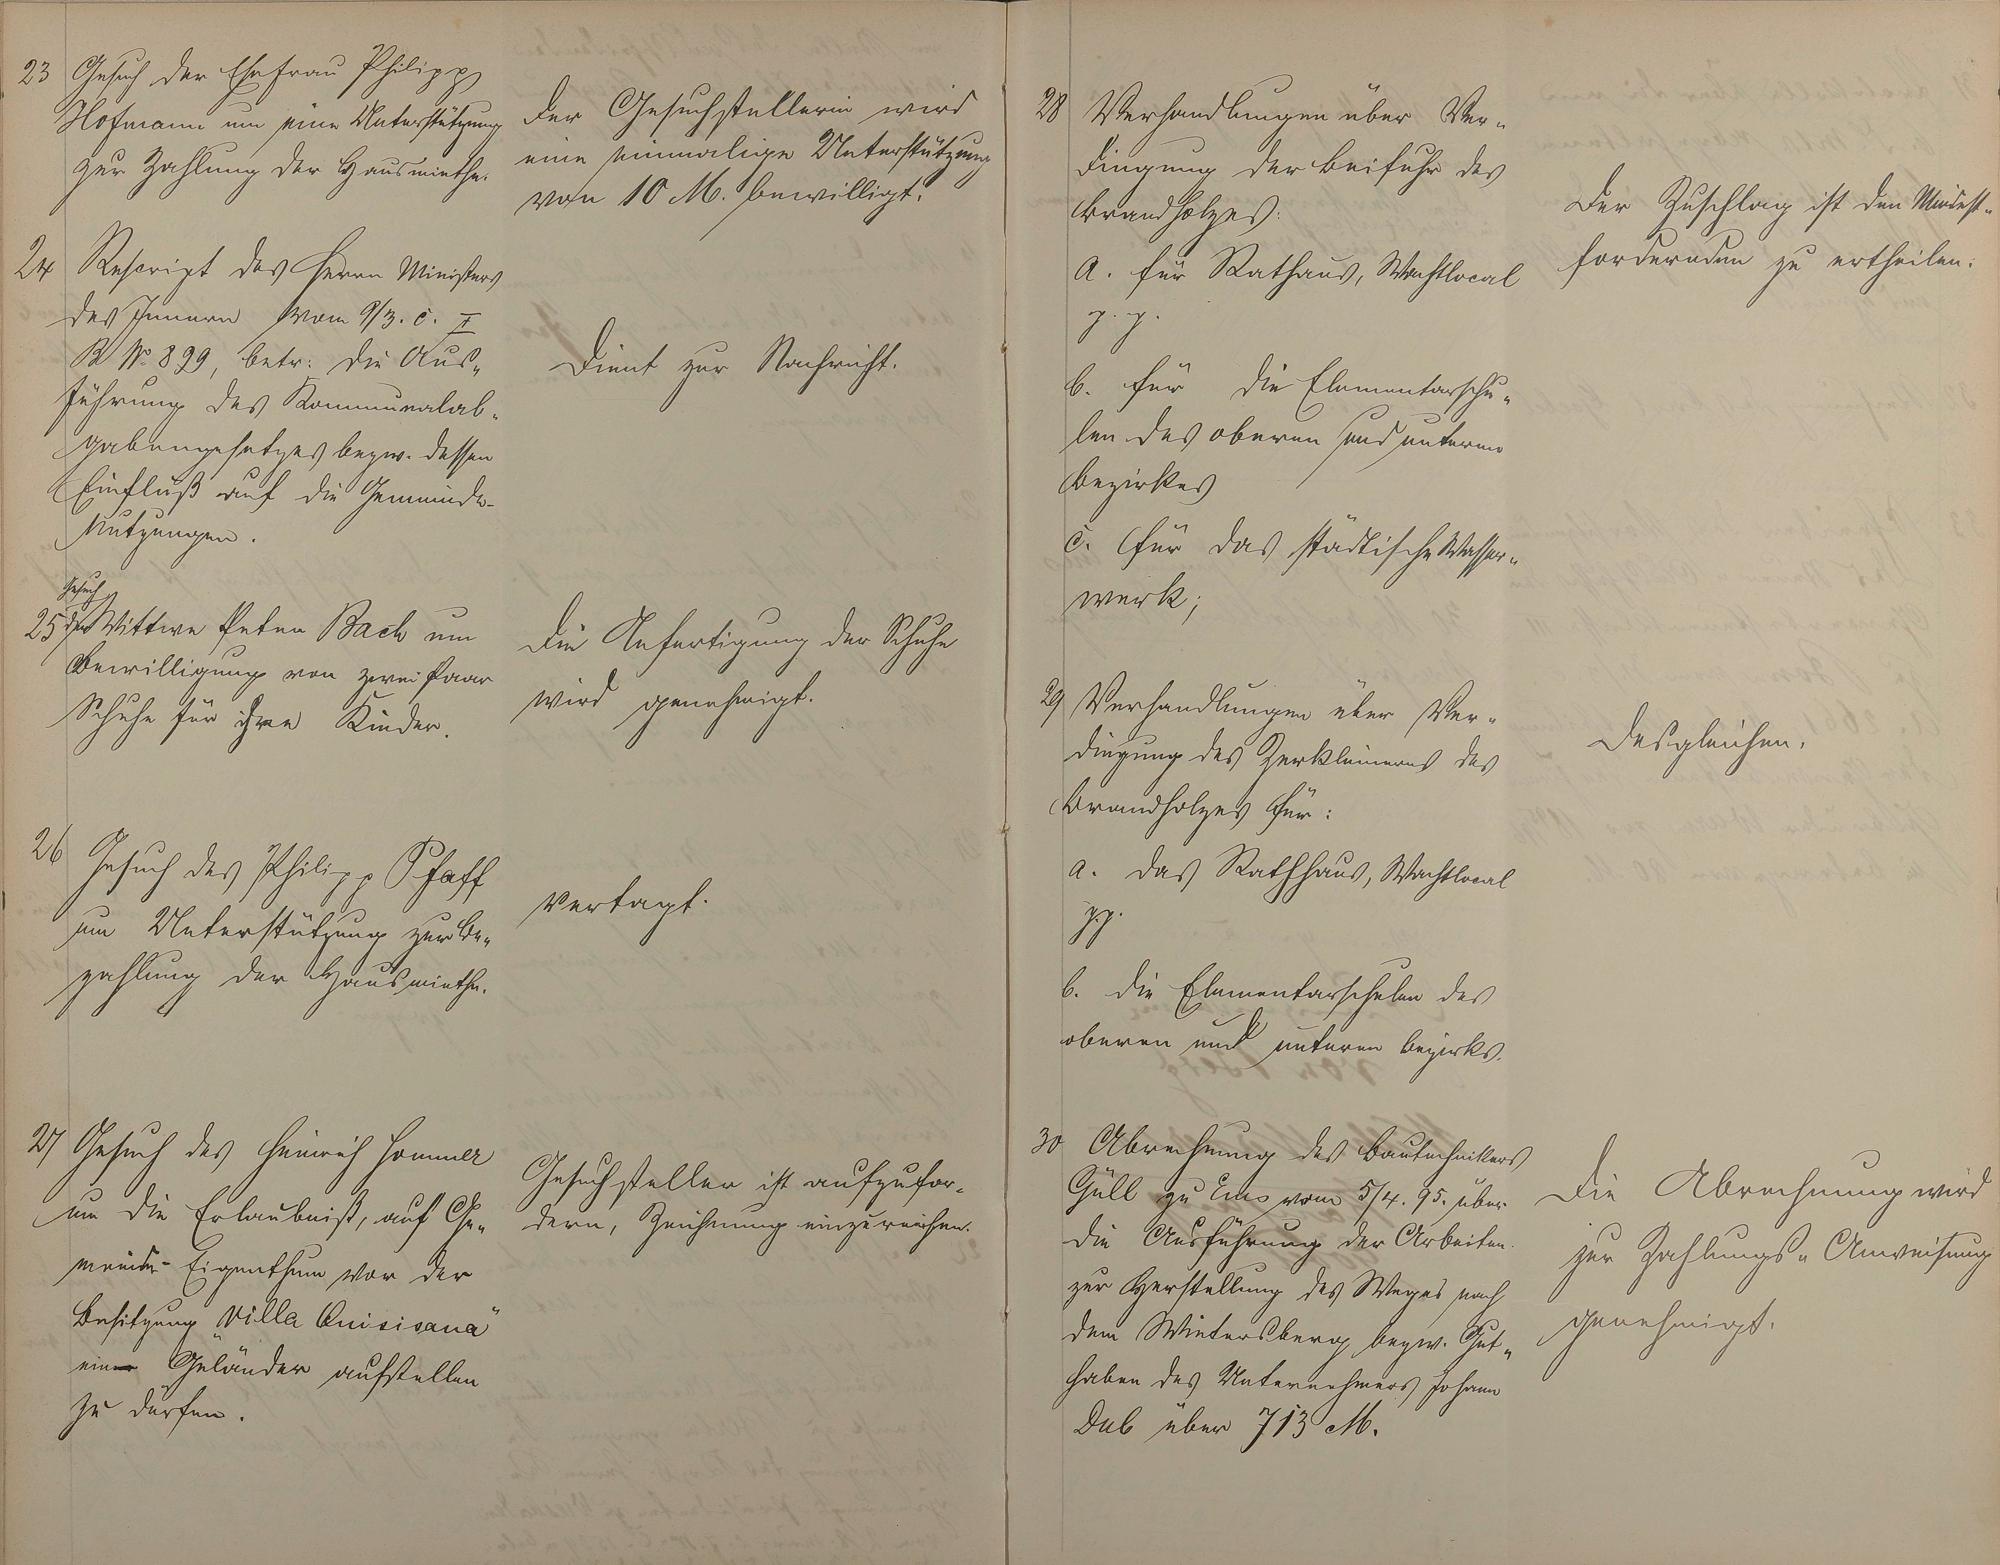 23 Gesuch der Ehefrau Philipp
Hofmann um eine Unterstützung
zur Zahlung der Hausmiethe.
Der Gesuchstellerin wird
eine einmalige Unterstützung
von 10 M. bewilligt.
24 Rescript des Herrn Ministers
des Innern vom 9/3. c. II
B No 899, betr: die Aus„
führung des Kommunalab„
gabengesetzes bezw. dessen
Einfluß auf die Gemeinde-
Nutzungen.
Dient zur Nachricht.
Gesuch
25 der Wittwe Peter Bach um
Bewilligung von zwei Paar
Schuhe für ihre Kinder.
Die Anfertigung der Schuhe
wird genehmigt.
26 Gesuch des Philipp Pfaff
um Unterstützung zur Be„
zahlung der Hausmiethe.
Vertagt.
27 Gesuch des Heinrich Hommer
um die Erlaubniß, auf Ge„
meinde-Eigenthum vor der
Besitzung „Villa Quisisana“
ein Geländer aufstellen
zu dürfen.
Gesuchsteller ist aufzufor„
dern, Zeichnung einzureichen.
28 Verhandlungen über Ver„
dingung der Beifuhr des
Brandholzes:
a. für Rathaus, Wachtlocal
p. p.
b. für die Elementarschu„
len des oberen und unteren
Bezirkes
c. für das städtische Wasser„
werk;
Der Zuschlag ist den Mindest„
fordernden zu ertheilen.
29 Verhandlungen über Ver„
dingung des Zerkleinerns des
Brandholzes für:
a. das Rathhaus, Wachtlocal
p.p.
b. die Elementarschulen des
oberen und unteren Bezirks.
Desgleichen.
30 Abrechnung des Bautechnikers
Güll zu Ems vom 5/4. 95. über
die Ausführung der Arbeiten
zur Herstellung des Weges nach
dem Wintersberg bezw. Gut„
haben des Unternehmers Johann
Dub über 713 M.
Die Abrechnung wird
zur Zahlungs„Anweisung
genehmigt.